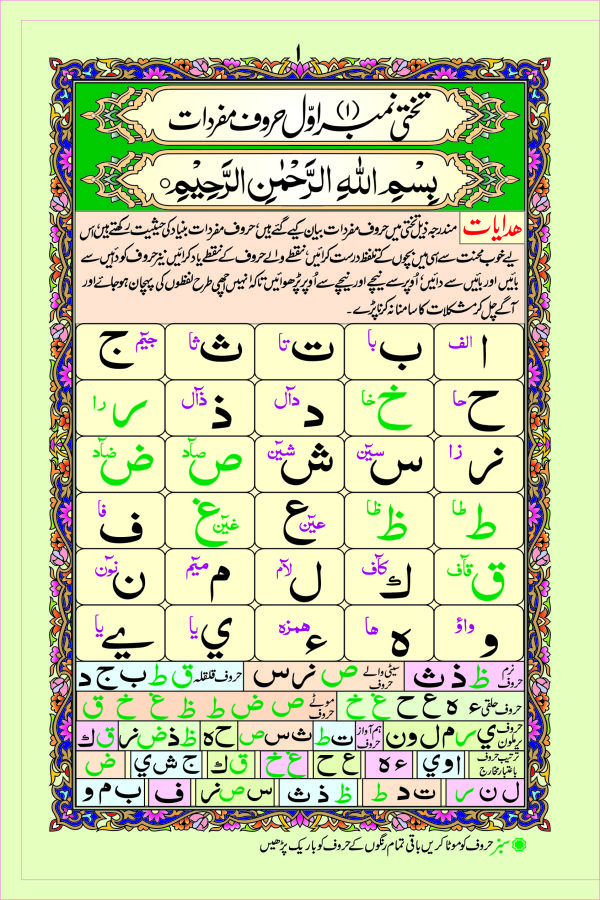 ۱
تختی نمبر (۱) اوّل حروف مفردات
بِسْمِ اللهِ الرَّحْمٰنِ الرَّحِیْمِ ○
ھدایات مندرجہ ذیل تختی میں حروف مفردات بیان کیے گئے ہیں، حروف مفردات بنیاد کی حیثیت رکھتے ہیں اس
لیے خوب محنت سے ہی میں بچوں کے تلفظ درست کرائیں، نقطے والے حروف کے نقطے یاد کرائیں نیز حروف کو دائیں سے
بائیں اور بائیں سے دائیں، اُوپر سے نیچے اور نیچے سے اُوپر پڑھوائیں تاکہ انہیں اچھی طرح لفظوں کی پہچان ہوجائے اور
آگے چل کر مشکلات کا سامنا نہ کرنا پڑے۔
ا الف ب با ت تا ث ثا ج جیٓم
ح حا خ خا د دآل ذ ذآل ر را
ز زا س سیٓن ش شیٓن ص صآد ض ضآد
ط طا ظ ظا ع عیٓن غ غیٓن ف فا
ق قآف ك کآف ل لآم م میٓم ن نوٓن
و واؤ ہ ھا ء ھمزہ ي یا ے یا
نرم حروف ظ ذ ث سیٹی والے حروف ص ز س حروف قلقلہ ق ط ب ج د
حروف حلقی ء ہ ع ح غ خ موٹے حروف ص ض ط ظ غ خ ق
حروف یرملون ي ر م ل و ن ہم آواز حروف ت ط ث س ص ح ہ ظ ذ ض ز ق ك
ترتیب حروف باعتبار مخارج ا و ي ء ہ ع ح غ خ ق ك ج ش ي ض
ل ن ر ت د ط ظ ذ ث س ص ز ف ب م و
سبز حروف کو موٹا کریں باقی تمام رنگوں کے حروف کو باریک پڑھیں